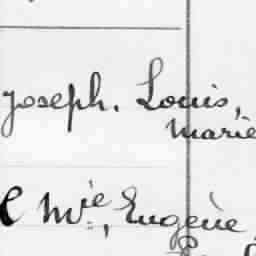 Joseph. Louis,
Marie
e Mie, Eugène